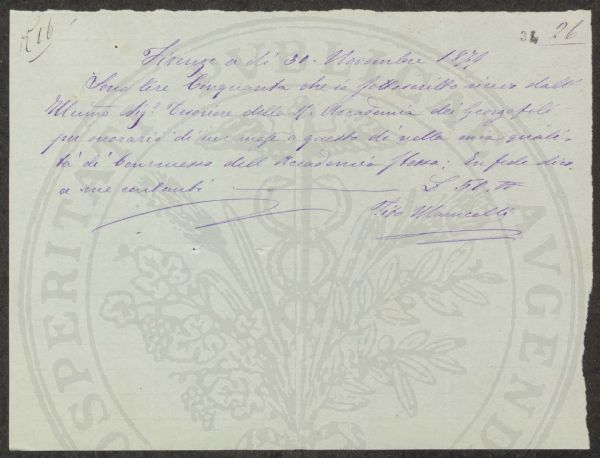 R 16
34 26
Firenze a dì 30. Novembre 1874
Sono lire Cinquanta che io sottoscritto ricevo dall'
Illmo Sigr Tesoriere della R. Accademia dei Georgofili
per onorario di un mese a questo dì nella mia quali-
tà di Commesso dell'Accademia stessa; In fede dico
a me contanti ——— £ 50,00
Tito
PROSPERITA AVGENDA